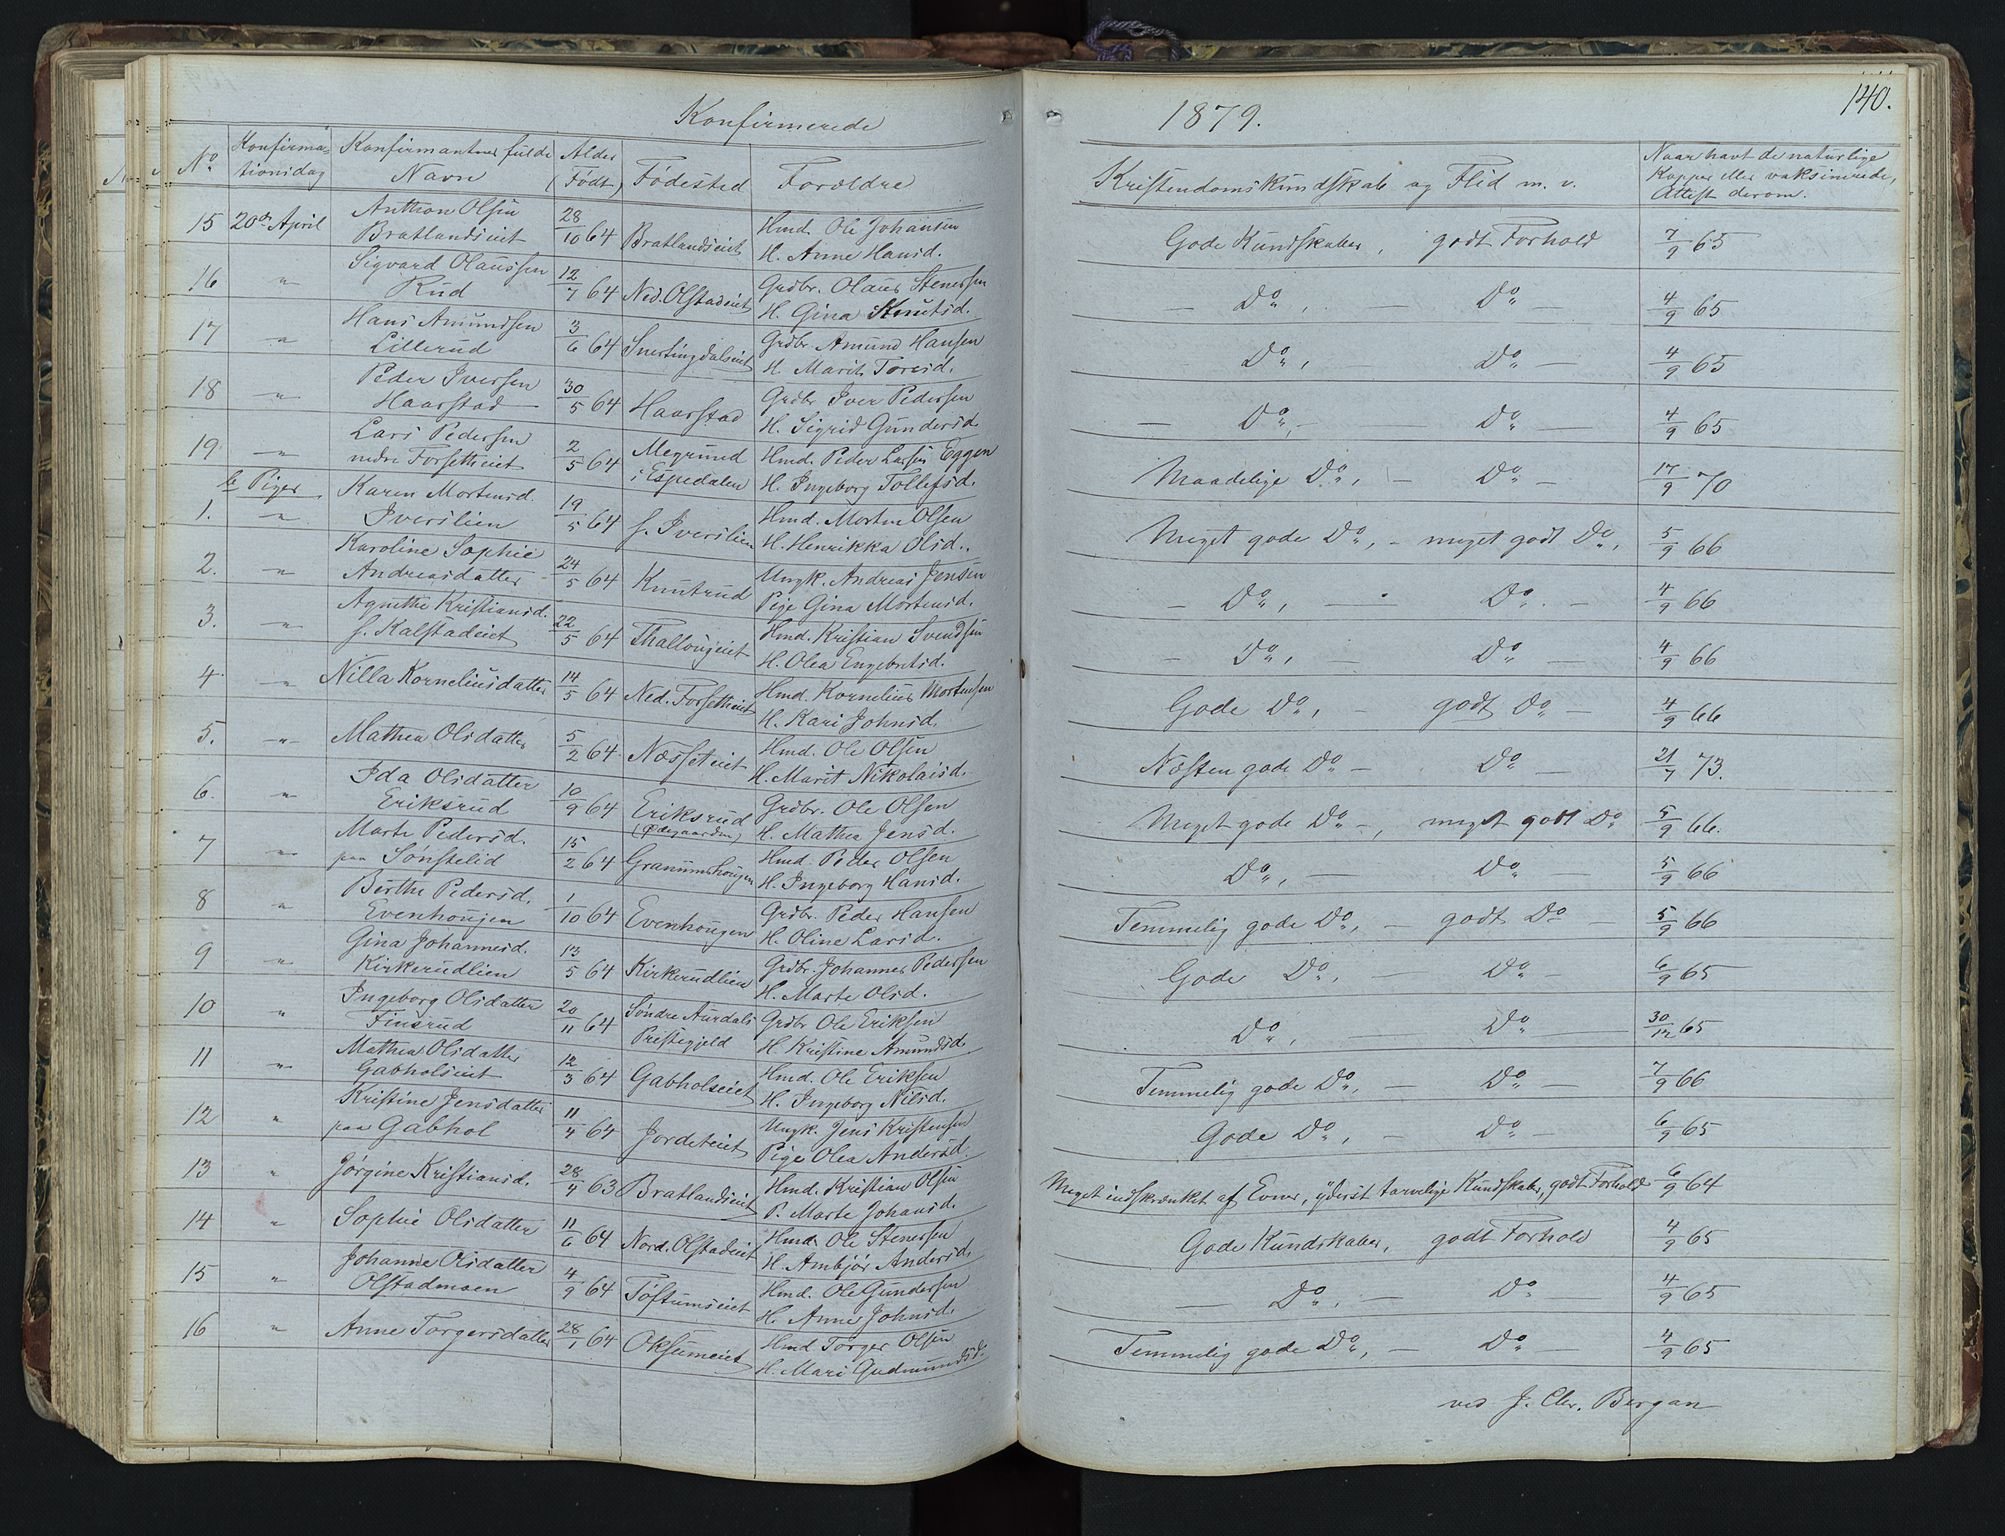 Konfirmerede
1879.
140.
No
Konfirma-
tionsdag
Konfirmanternes fulde
Navn
Alder
(Født)
Fødested
Forældre
Kristendomskundskab og Flid m. v.
Naar havt de naturlige
Kopper eller vaksinerede,
Attest derom.
15 20de April Anthon Olsen Bratlandseiet 28/10 64 Bratlandseiet Hmd. Ole Johansen H. Anne Hansd. Gode Kundskaber, godt Forhold 7/9 65
16 " Sigvard Olaussen Rud 12/7 64 Ned. Olstadeiet Grdbr. Olaus Stenersen H. Gina Knutsd. — Do, — Do — 4/9 65
17 " Hans Amundsen Lillerud 3/6 64 Snertingdalseiet Grdbr. Amund Hansen H. Marit Toresd. Do, Do — 4/9 65
18 " Peder Iversen Haarstad 30/5 64 Haarstad Grdbr Iver Pedersen H. Sigrid Gundersd. — Do, — Do — 4/9 65
19. " Lars Pedersen nedre Forsetheiet 2/5 64 Megrund i Espedalen Hmd. Peder Larsen Eggen H. Ingeborg Tollefsd. Maadelige Do, — Do — 17/9 70
b Piger
1. " Karen Mortensd. Iverslien 19/5 64 s. Iverslien Hmd. Morten Olsen H. Henrikka Olsd. Meget gode Do, — meget godt Do, 5/9 66
2. " Karoline Sophie Andreasdatter 24/5 64 Knutrud Ungk. Andreas Jensen Pige Gina Mortensd. — Do, — Do. — 4/9 66
3. " Agnethe Kristiansd. s. Kalstadeiet 22/5 64 Thallougeiet Hmd. Kristian Svendsen H. Olea Engebretsd. — Do, — Do — 4/9 66
4 " Nilla Korneliusdatter 14/5 64 Ned. Forsetheiet Hmd. Kornelius Mortensen H. Kari Johnsd. Gode Do, — godt Do — 4/9 66
5. " Mathea Olsdatter 5/2 64 Næsseteiet Hmd. Ole Olsen H. Marit Nikolaisd. Næsten gode Do — Do — 21/7 73.
6. " Ida Olsdatter Eriksrud 10/9 64 Eriksrud (Ødegaarden) Grdbr. Ole Olsen H. Mathea Jensd. Meget gode Do —, meget godt Do 5/9 66.
7 " Marte Pedersd. paa Sønstelid 15/2 64 Granumshougen Hmd. Peder Olsen H. Ingeborg Hansd. Do, — Do — 5/9 66
8 " Berthe Pedersd. Evenhougen 1/10 64 Evenhougen Grdbr. Peder Hansen H. Oline Larsd. Temmelig gode Do, — godt Do — 5/9 66
9 " Gina Johannesd. Kirkerudlien 13/5 64 Kirkerudlien Grdbr. Johannes Pedersen H. Marte Olsd. Gode Do, — Do — 6/9 65
10 " Ingeborg Olsdatter Finsrud 20/11 64 Søndre Aurdals Prestegjeld Grdbr Ole Eriksen H. Kristine Amundsd. Do, — Do — 30/12 65
11 " Mathea Olsdatter Gabholseiet 12/3 64 Gabholseiet Hmd. Ole Eriksen H. Ingeborg Nilsd. Temmelig gode Do, — Do — 7/9 66
12 " Kristine Jensdatter paa Gabhol 11/4 64 Jordeteiet Ungk. Jens Kristensen Pige Olea Andersd. Gode Do, — Do — 6/9 65
13 " Jørgine Kristiansd. 28/4 63 Bratlandseiet Hmd. Kristian Olsen P. Marte Johansd. Meget indskrænket af Evner, yderst tarvelige Kundskaber, godt Forhold 6/9 64
14 " Sophie Olsdatter 11/6 64 Nord. Olstadeiet Hmd. Ole Stenersen H. Ambjør Andersd. Gode Kundskaber, godt Forhold 4/9 65
15 " Johanne Olsdatter Olstadmoen 4/9 64 Toftumseiet Hmd. Ole Gundersen H. Anne Johnsd. — Do, — Do — 4/9 65
16 " Anne Torgersdatter 28/1 64 Oksumeiet Hmd Torger Olsen H. Mari Gudmundsd. Temmelig gode Do, — Do — 4/9 65
ved J. Chr. Bergan